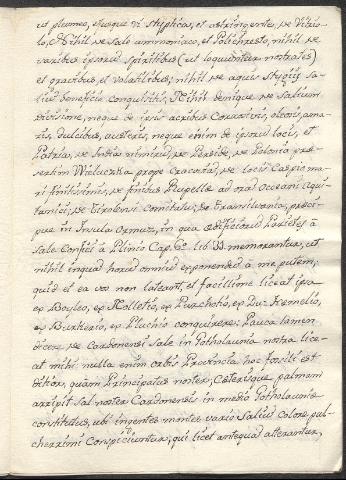 ut plumeo, eiusque vi styptica, et astringente, de Vitrio-
lo, Nihil de Sale ammoniaco, et Polichresto, nihil de
varibus ipsorum Spiritibus (ut loquuntur nostrates)
et gravibus, et volatilibus; nihil de aquis
lium beneficio conquisitis, Nihil denique de Salium
divisione, neque de ipsis acribus oleosis, ama-
ris, dulcibus, austeris, neque enim de ipsorum locis, et
Patria, de India nimirum, de Perside, de Polonia prae-
sertim Wieluczka prope Cracoviam, de locis Caspio ma-
ri finitissimis, de finibus Rupellae ad oras Oceani Aqui-
tanici, de Tirolensi comitatu, de Transilvania, praeci-
pue in Insula Ormuz, in qua aedificiorum Parietes à
Sale Confici à Plinio Cap. lib. memorantur, ut
nihil inquam horum omnium exponendum à me putem,
quid et ea vos non lateant, et facillime liceat ipsa
ex Boyleo, ex Nolletio, ex Purchotio, ex
ex ex Pluchio conquirere: Pauca tamen
dicere de Cardonensi Sale in Gotholaunia nostra lice-
at mihi nulla enim orbis Provincia hoc fossili est
ditior, quam Principatus noster, Ceterisque palmam
arripit Sal noster Cardonensis in media Gotholaunia
constitutus, ubi ingentes montes vario Salium Colore pul-
cherrimi Conspiciuntur; qui licet antequam atterantur,